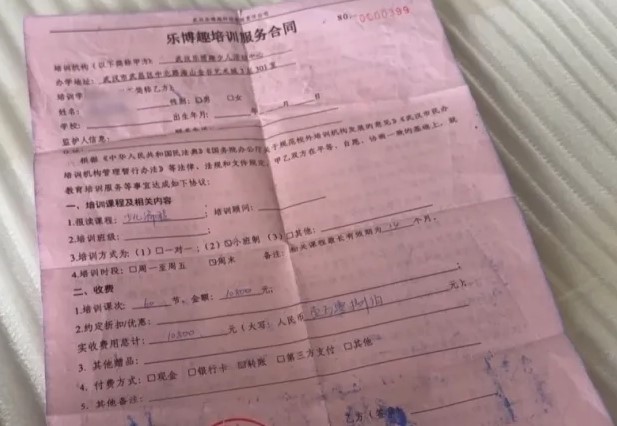 乐博趣培训服务合同
NO: 0000399
培训机构(以下简称甲方): 武汉乐博趣少儿
办学地址: 武汉市武昌区中北路
培训学 简称乙方)
姓名: 性别: 男 女
学校: 出生年月: 年 月 日
监护人信息:
根据《中华人民共和国民法典》《国务院办公厅关于规范校外培训机构发展的意见》《武汉市民办
培训机构管理暂行办法》等法律、法规和文件规定, 甲乙双方在平等、自愿、协商一致的基础上, 就
教育培训服务等事宜达成如下协议:
一、培训课程及相关内容
1.报读课程: 少儿编程; 培训顾问:
2.培训班级:
3.培训方式为: (1) □一对一; (2) ☑小班制 (3) □其他:
4.培训时段: □周一至周五 ☑周末 备注: 相关课程最长有效期为 个月。
二、收费
1.培训课次: 60 节。金额: 10800 元;
2.约定折扣/优惠:
实收费用总计: 10800 元 (大写: 人民币 元)。
3. 其他赠品:
4. 付费方式: □现金 □银行卡 ☑转账 □第三方支付 □其他
5. 其他备注:
乙方 (签